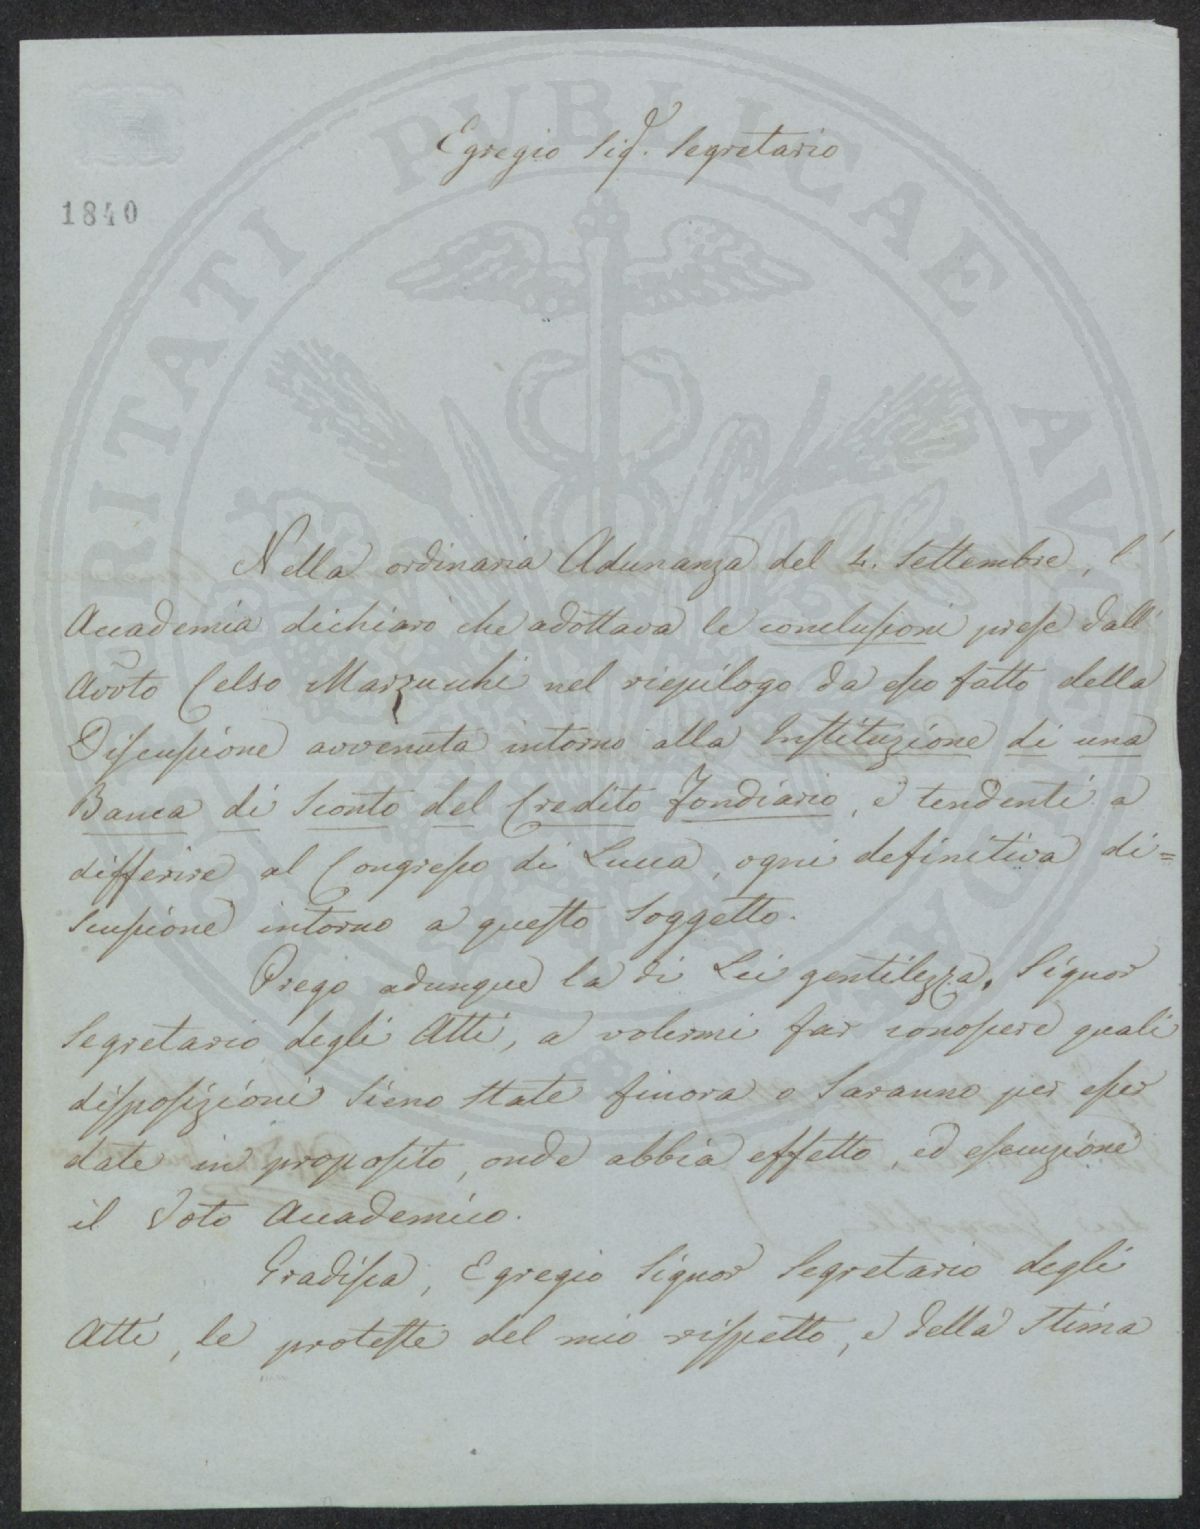 Egregio Sigr. Segretario
1840
Nella ordinaria Adunanza del 4. Settembre, l'
Accademia dichiarò che adottava le conclusioni prese dall'
Avvto Celso Marzucchi nel riepilogo da esso fatto della
Discussione avvenuta intorno alla Instituzione di una
Banca di Sconto del Credito Fondiario, e tendenti a
differire al Congresso di Lucca, ogni definitiva di=
scussione intorno a questo soggetto.
Prego adunque la di Lei gentilezza, Signor
Segretario degli Atti, a volermi far conoscere quali
disposizioni sieno state finora o saranno per esser
date in proposito, onde abbia effetto, ed esecuzione
il Voto Accademico.
Gradisca, Egregio Signor Segretario degli
Atti, le proteste del mio rispetto, e della stima